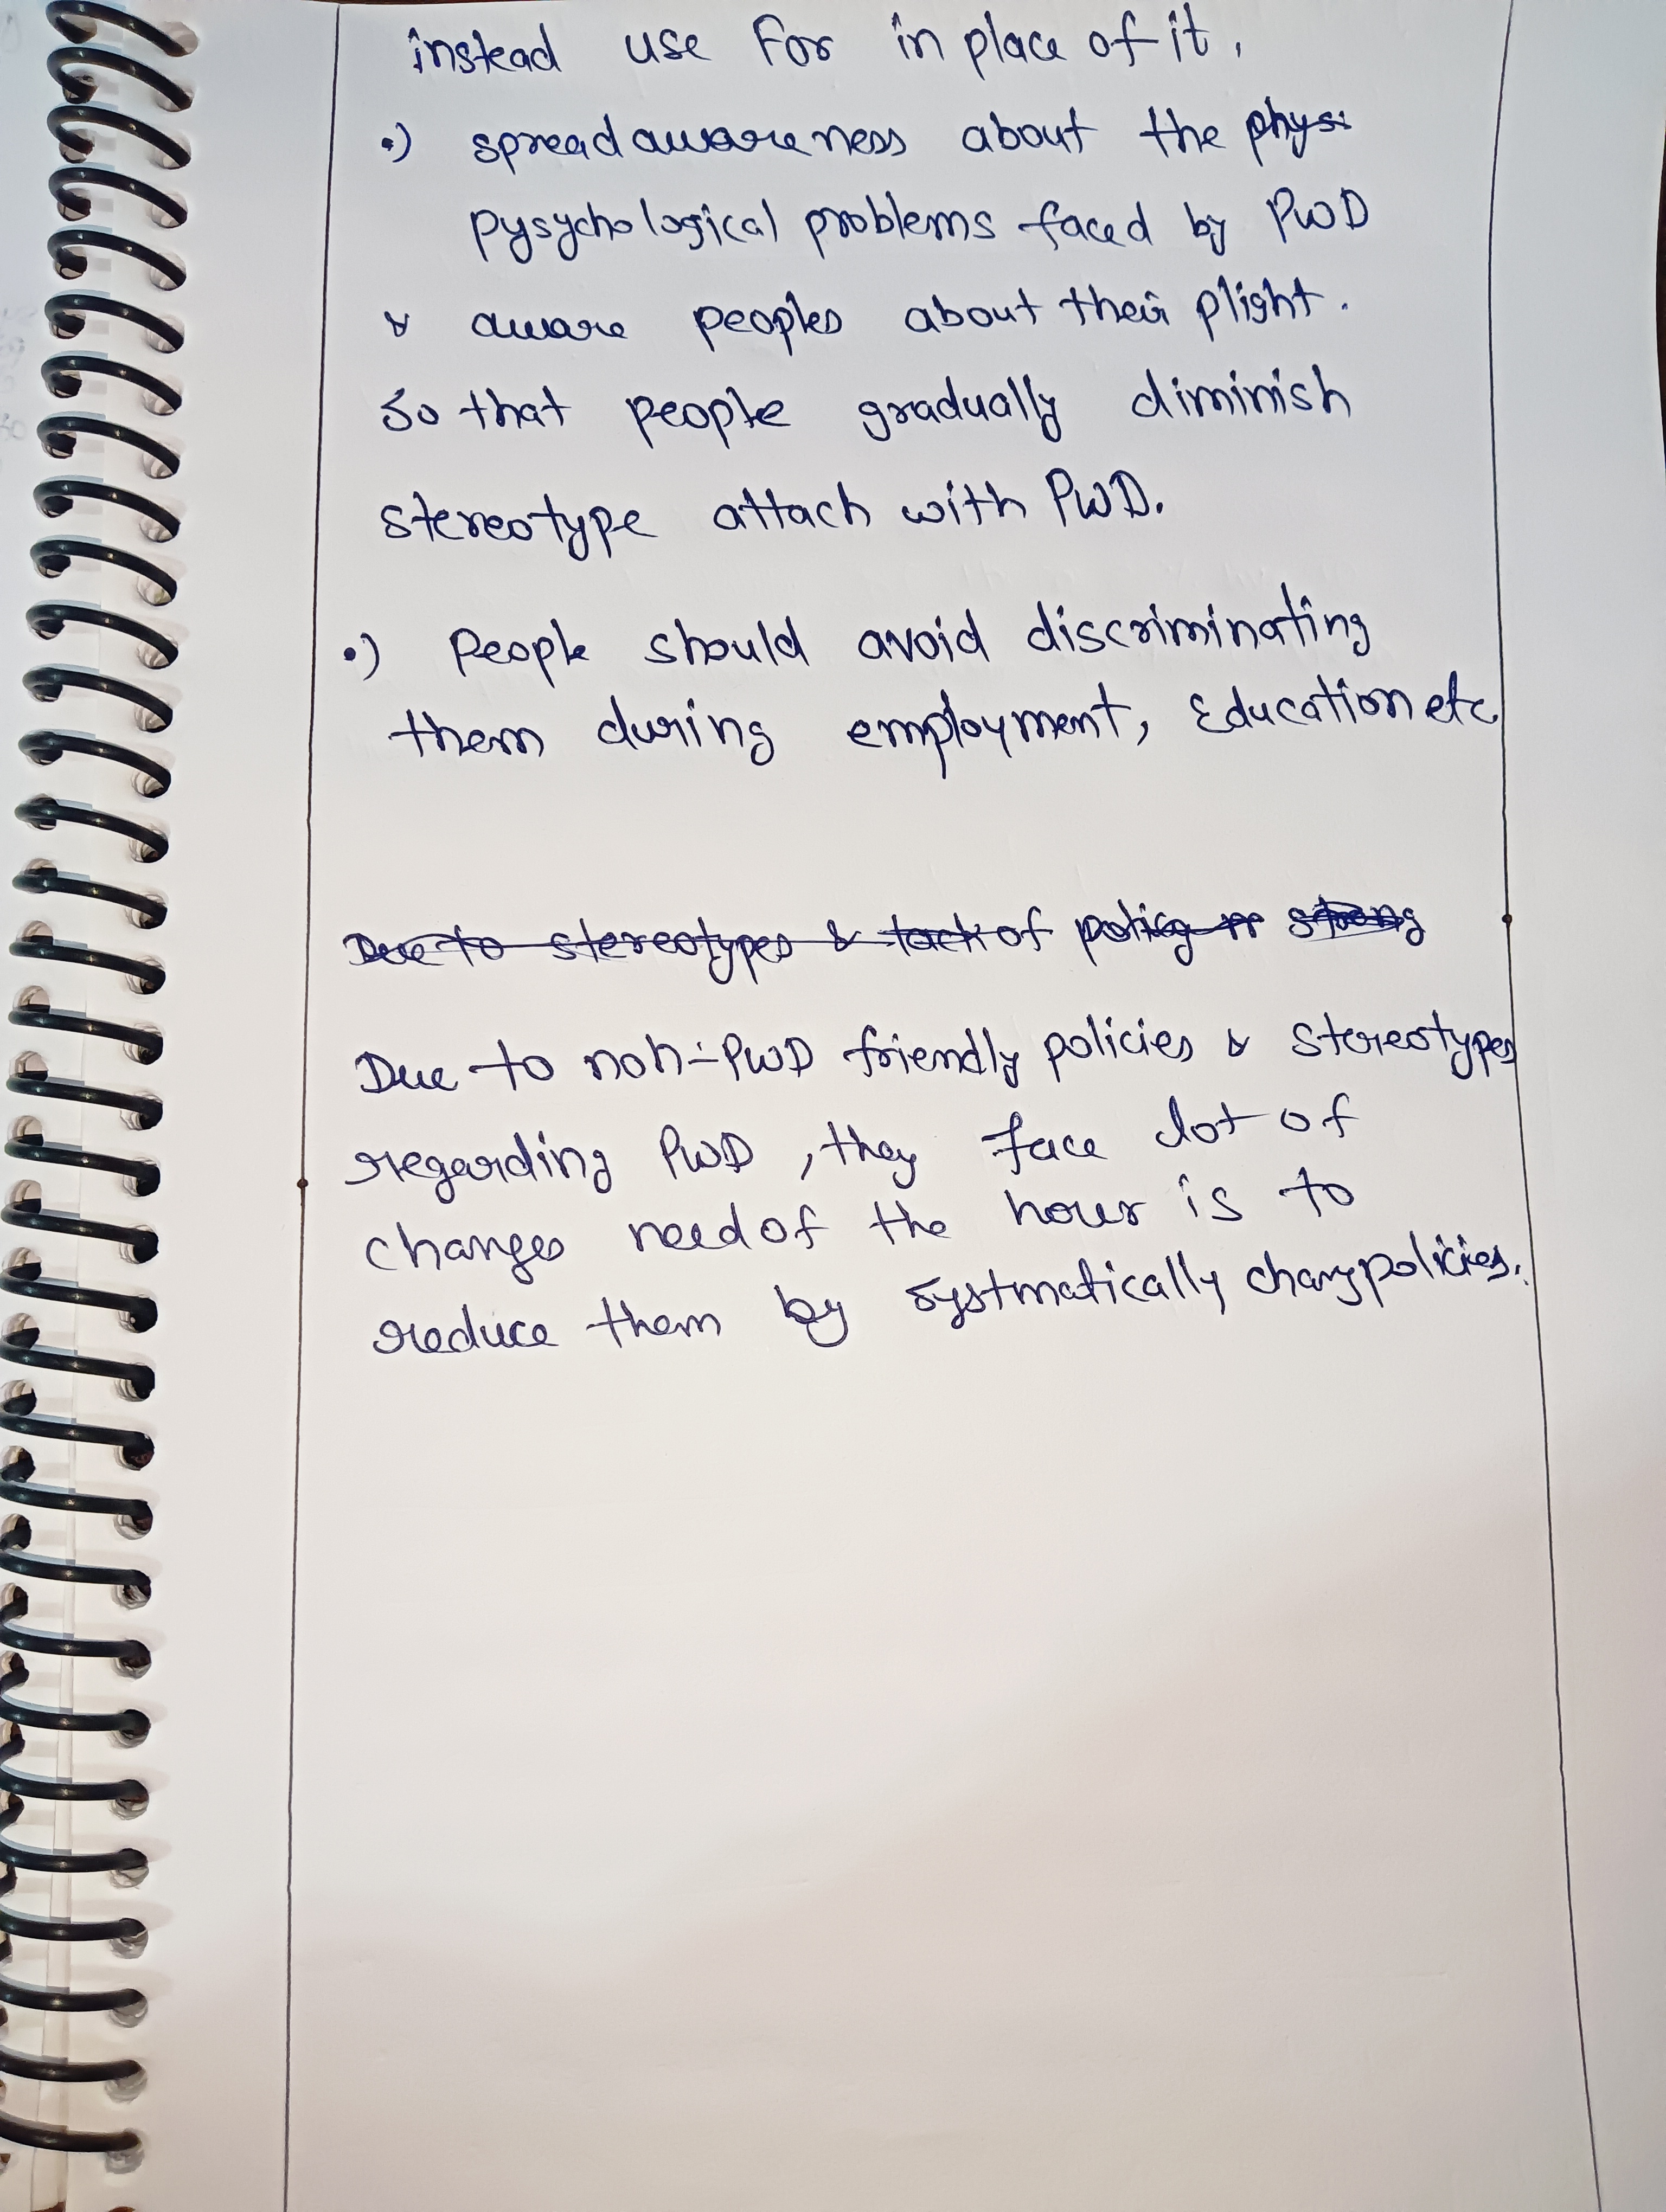 instead use For in place of it,
•) spread awareness about the physi
pysychological problems faced by PWD
& aware peoples about their plight.
So that people gradually diminish
stereotype attach with PWD.
•) People should avoid discriminating
them during employment, Education etc
Due to stereotypes & lack of policy strong
Due to non-PWD friendly policies & stereotypes
regarding PWD, they face lot of
changes need of the hour is to
reduce them by systmatically chang policies.